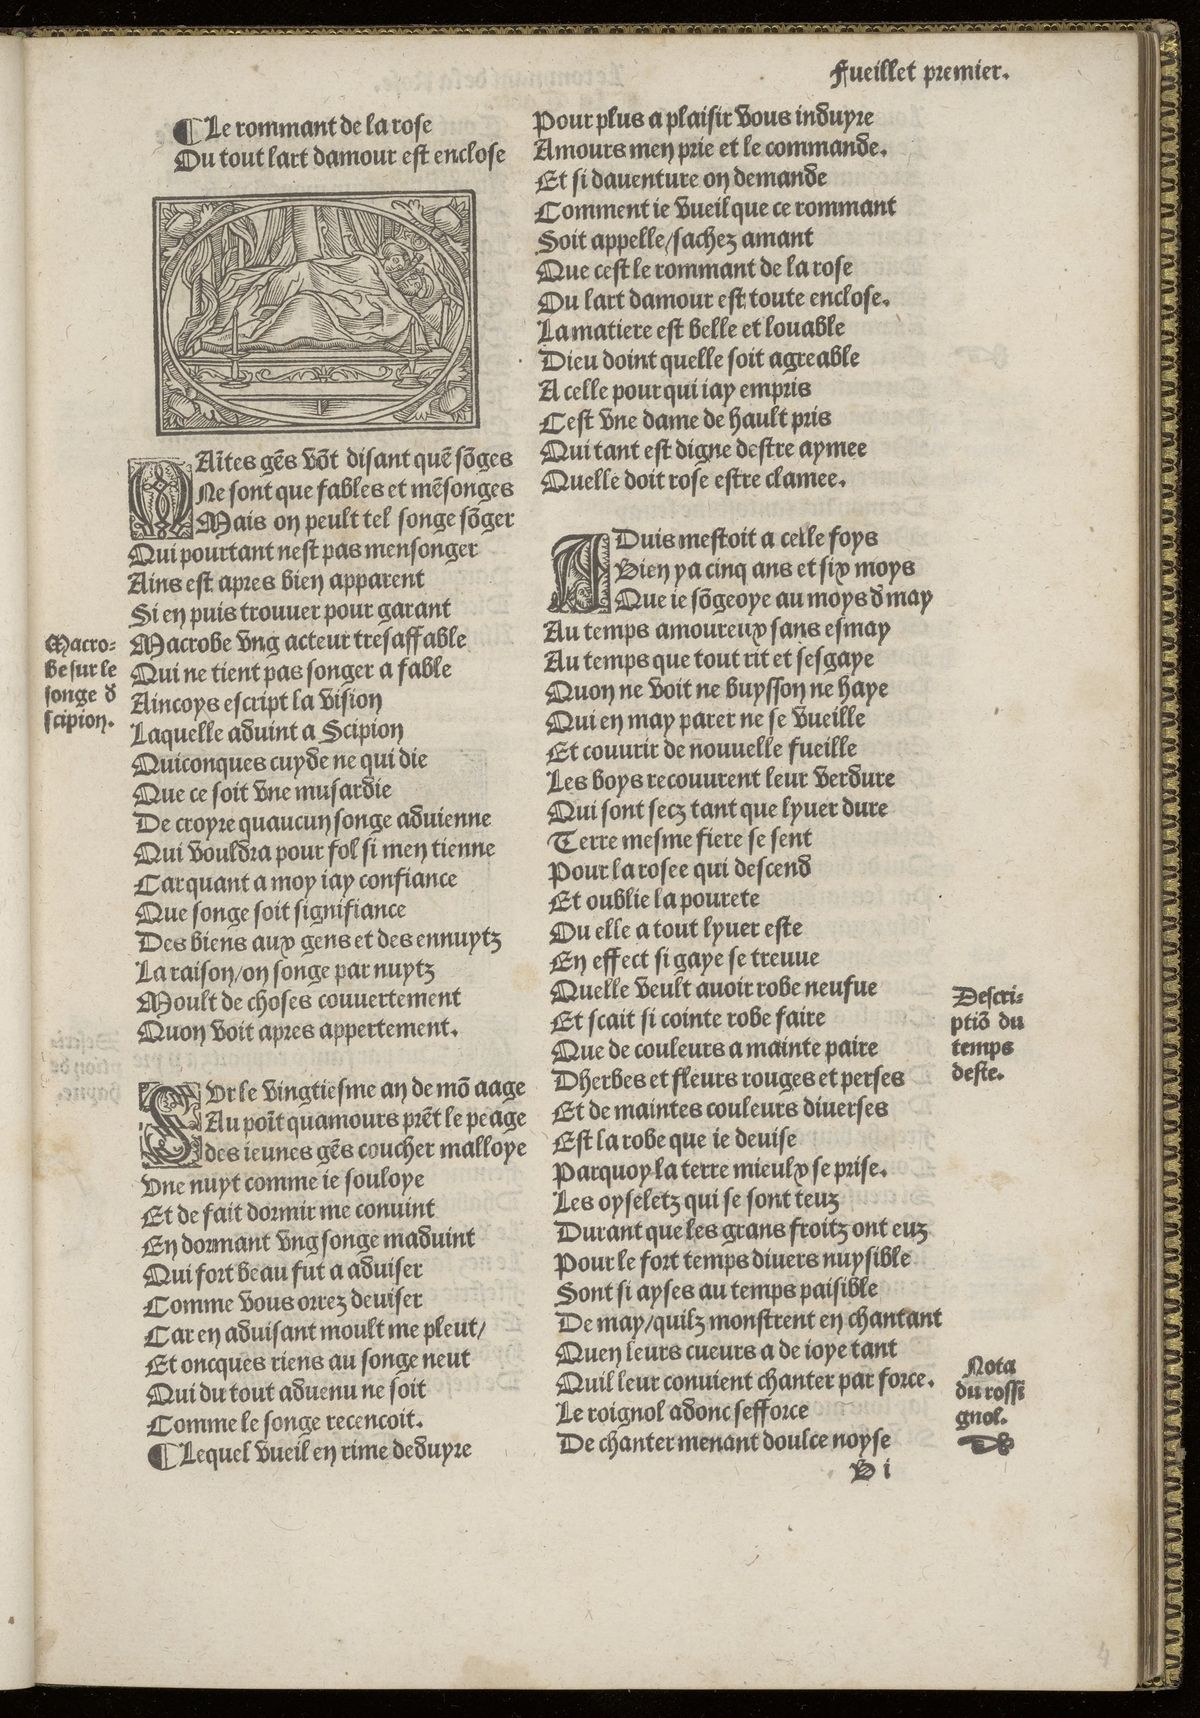 Fueillet premier.
¶ Le rommant de la rose
Ou tout lart damour est enclose
MAĩtes gẽs võt disant quẽ sõges
Ne sont que fables et mẽsonges
Mais on peult tel songe sõger
Qui pourtant nest pas mensonger
Ains est apres bien apparent
Si en puis trouuer pour garant
Macrobe vng acteur tresaffable
Qui ne tient pas songer a fable
Aincoys escript la vision
Laquelle aduint a Scipion
Quiconques cuyde ne qui die
Que ce soit vne musardie
De croyre quaucun songe aduienne
Qui vouldra pour fol si men tienne
Car quant a moy iay confiance
Que songe soit signifiance
Des biens aux gens et des ennuytz
La raison/on songe par nuytz
Moult de choses couuertement
Quon voit apres appertement.
Macro-
be sur le
songe d̄
scipion.
SUr le vingtiesme an de mõ aage
Au poĩt quamours prẽt le peage
des ieunes gẽs coucher malloye
Vne nuyt comme ie souloye
Et de fait dormir me conuint
En dormant vng songe maduint
Qui fort beau fut a aduiser
Comme vous orrez deuiser
Car en aduisant moult me pleut/
Et oncques riens au songe neut
Qui du tout aduenu ne soit
Comme le songe recencoit.
¶ Lequel vueil en rime deduyre
Pour plus a plaisir vous induyre
Amours men prie et le commande.
Et si dauenture on demande
Comment ie vueil que ce rommant
Soit appelle/sachez amant
Que cest le rommant de la rose
Ou lart damour est toute enclose.
La matiere est belle et louable
Dieu doint quelle soit agreable
A celle pour qui iay empris
Cest vne dame de hault pris
Qui tant est digne destre aymee
Quelle doit rose estre clamee.
ADuis mestoit a celle foys
Bien ya cinq ans et six moys
Que ie sõgeoye au moys d̄ may
Au temps amoureux sans esmay
Au temps que tout rit et sesgaye
Quon ne voit ne buysson ne haye
Qui en may parer ne se vueille
Et couurir de nouuelle fueille
Les boys recouurent leur verdure
Qui sont secz tant que lyuer dure
Terre mesme fiere se sent
Pour la rosee qui descend
Et oublie la pourete
Ou elle a tout lyuer este
En effect si gaye se treuue
Quelle veult auoir robe neufue
Et scait si cointe robe faire
Que de couleurs a mainte paire
Dherbes et fleurs rouges et perses
Et de maintes couleurs diuerses
Est la robe que ie deuise
Parquoy la terre mieulx se prise.
Les oyseletz qui se sont teuz
Durant que les grans froitz ont euz
Pour le fort temps diuers nuysible
Sont si ayses au temps paisible
De may/quilz monstrent en chantant
Quen leurs cueurs a de ioye tant
Quil leur conuient chanter par force.
Le roignol adonc sefforce
De chanter menant doulce noyse
Descri-
ptiõ du
temps
deste.
Nota
du rossi
gnol.
B i
4